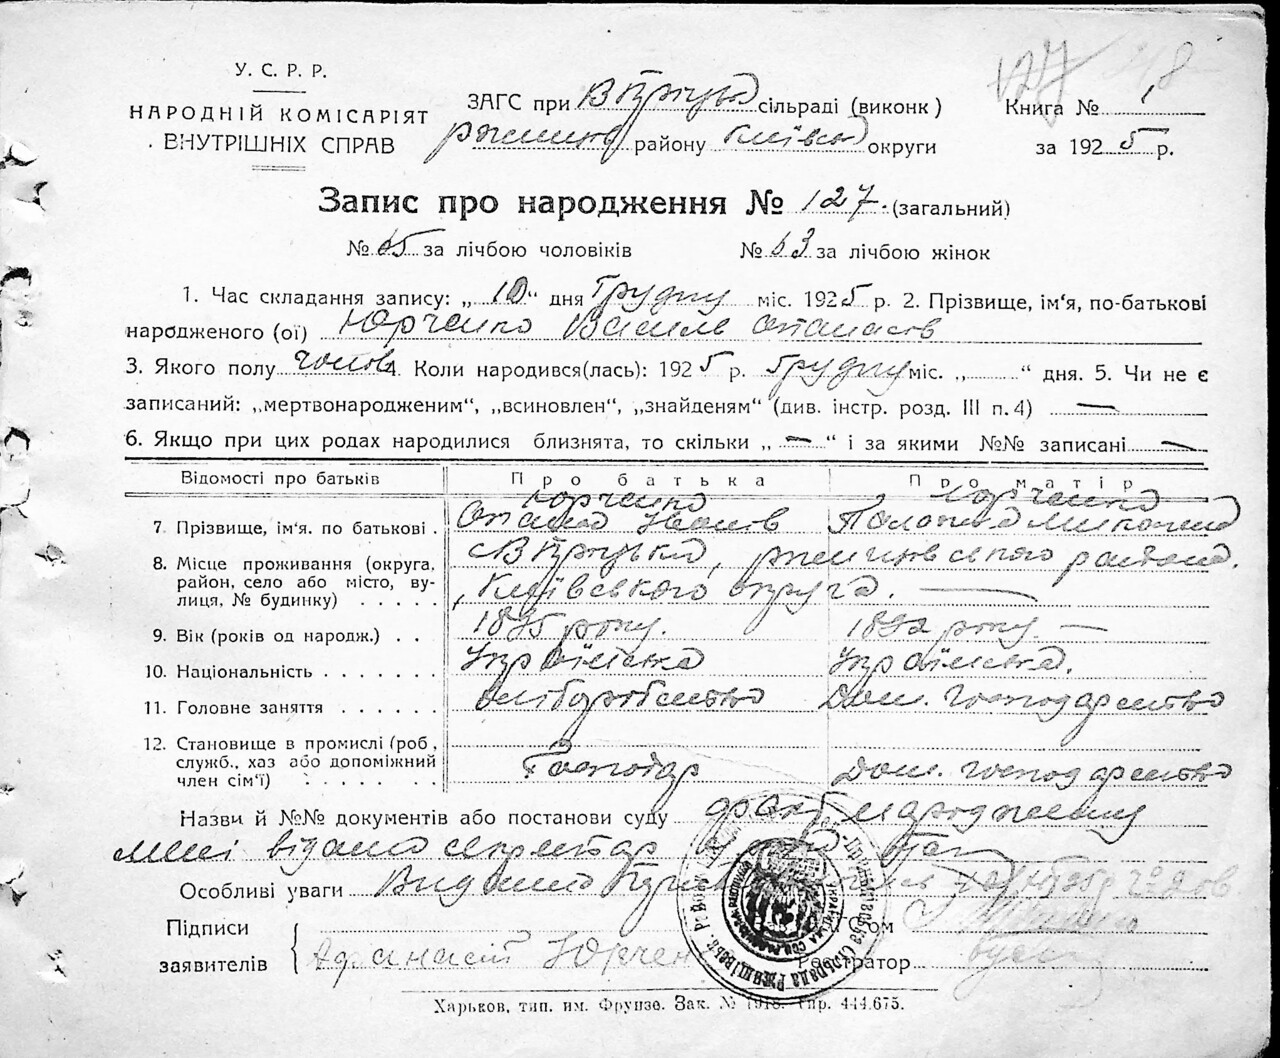 У. С. Р. Р.
НАРОДНІЙ КОМІСАРІЯТ
ВНУТРІШНІХ СПРАВ
ЗАГС при сільраді (виконк )
району Київськ округи
Книга № 1
за 1925 р.
127
Запис про народження № 127. (загальний)
№ 65 за лічбою чоловіків № 63 за лічбою жінок
1. Час складання запису: „ 10 “ дня Грудня міс. 1925 р. 2. Прізвище, ім‘я, по-батькові
народженого (ої) Юрченко Василь Опанасів
3. Якого полу чолов 4. Коли народився(лась): 1925 р. Грудня міс. „ “ дня. 5. Чи не є
записаний: „мертвонародженим“, „всиновлен“, „знайденям“ (див. інстр. розд. III п. 4) —
6. Якщо при цих родах народилися близнята, то скільки „ — “ і за якими №№ записані —
Відомості про батьків Про батька Про матір
7. Прізвище, ім‘я. по батькові . Юрченко Опанас Іванів Юрченко
8. Місце проживання (округа, район, село або місто, вулиця, № будинку) . . . . .
Київського округа. —
9. Вік (років од народж.) . . 1895 року. 1892 року. —
10. Національність . . . . . . . Українська Українська.
11. Головне заняття . . . . . хліборобство Дом. господарство
12. Становище в промислі (роб , служб., хаз або допоміжний член сім‘ї) . . . . . . Господар Дом. господарство
Назви й №№ документів або постанови суду
мені відамо секретар
Особливі уваги
Підписи
заявителів Афанасій Юрчен
Реєстратор
Харьков, тип. им. Фрунзе. Зак. № 1918. Пр. 444.675.